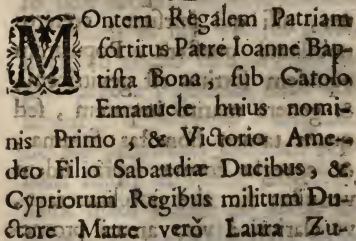 MOntem Regalem Patriam
sortitus Patre Ioanne Bap-
tista Bona, sub Carolo
Emanuele huius nomi-
nis Primo, & Victorio Ame-
deo Filio Sabaudiæ Ducibus, &
Cypriorum Regibus militum Du-
ctore Matre verò Laura Zu-